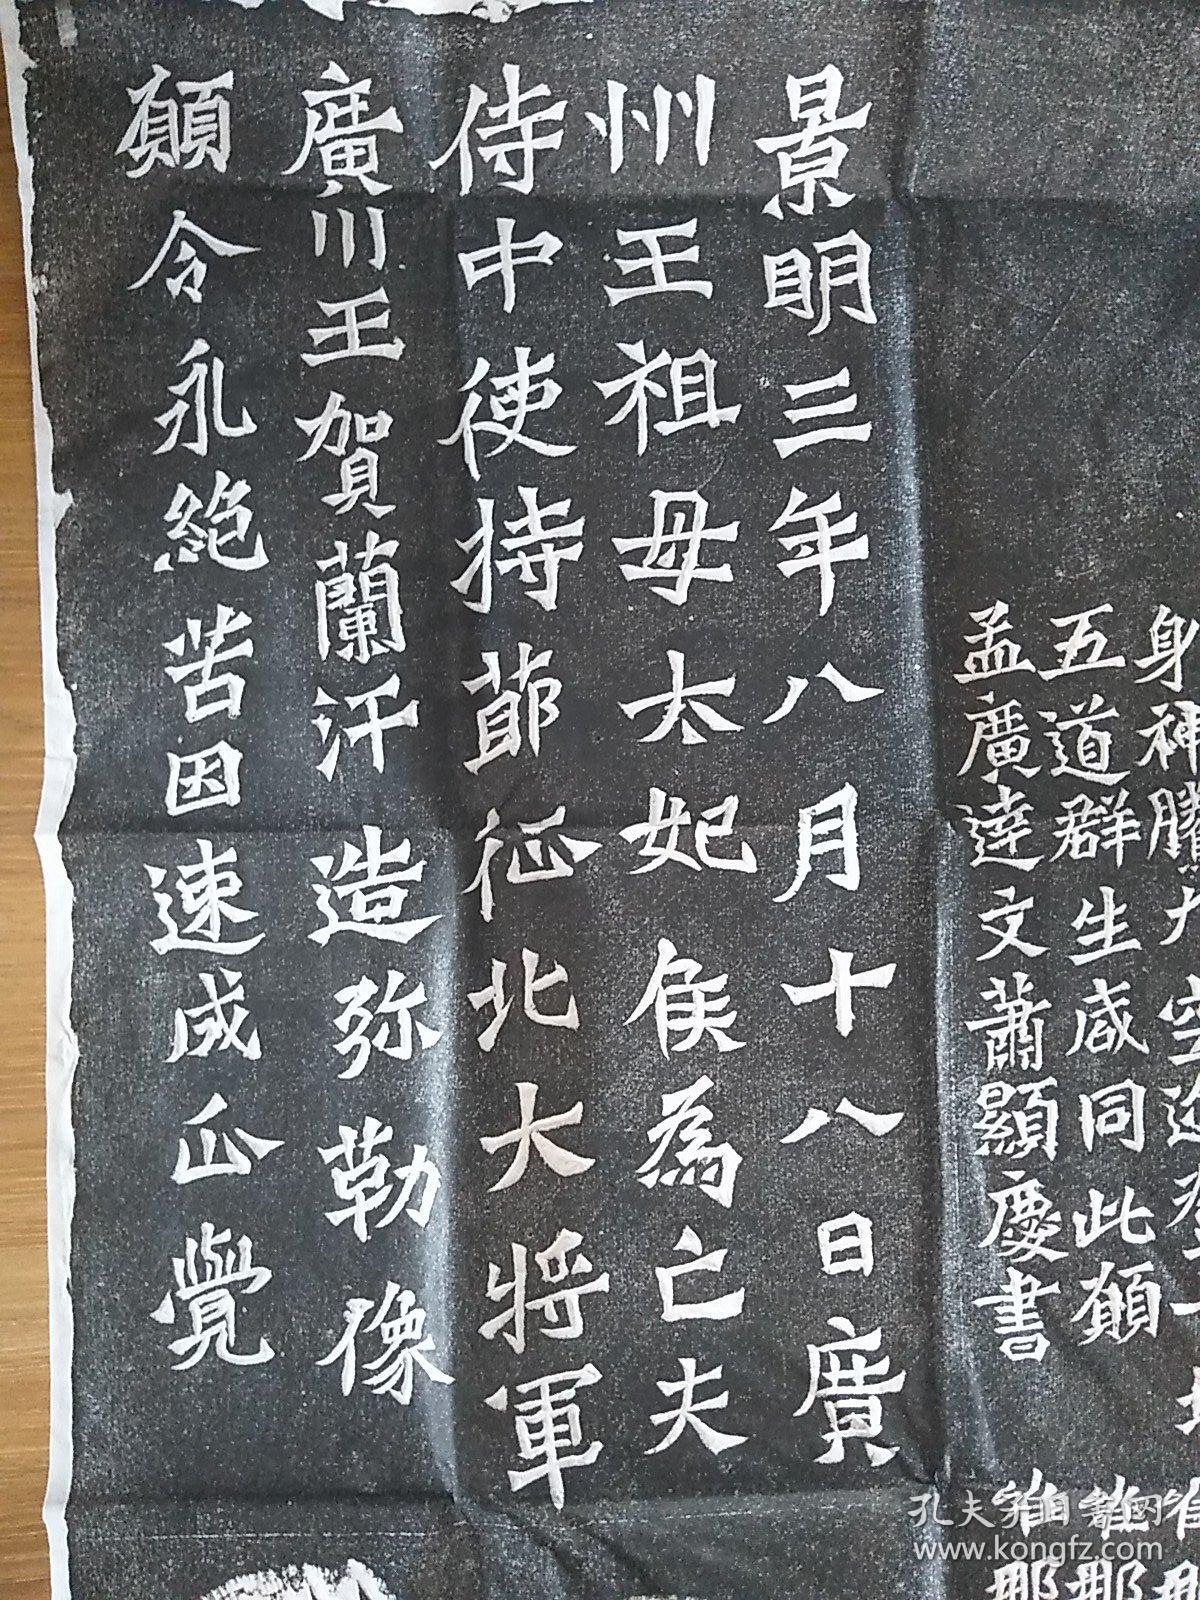 身神騰九空迹
五道群生咸同此願
孟廣達文蕭顯慶書
維那
維那
景明三年八月十八日廣
州王祖母太妃侯為亡夫
侍中使持節征北大將軍
廣川王賀蘭汗造弥勒像
願令永絕苦因速成正覺
孔夫子旧书网
www.kongfz.com